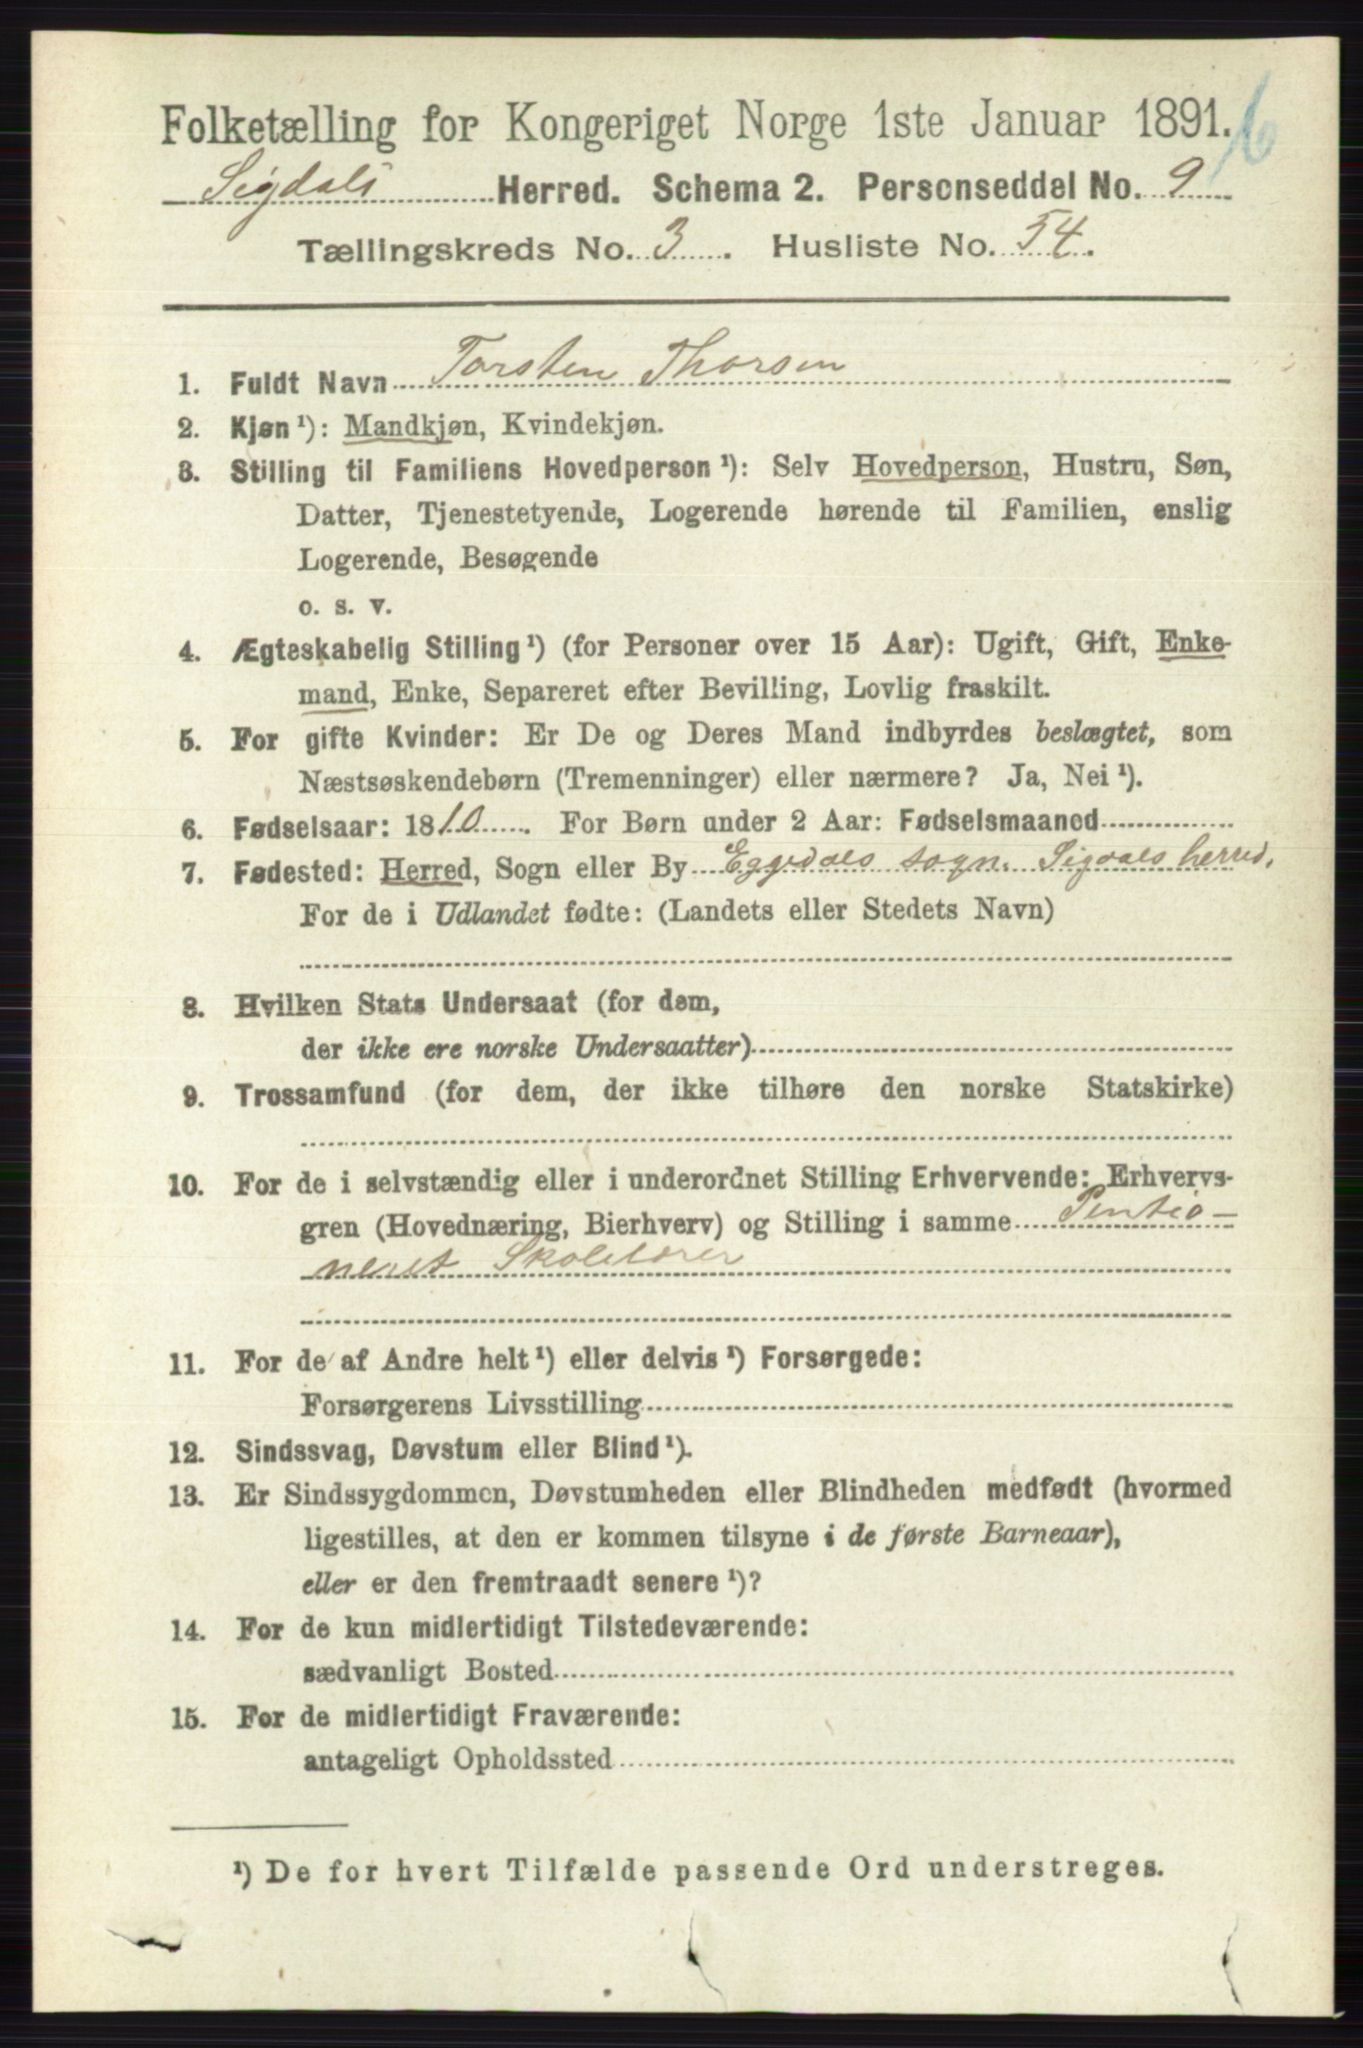 Folketælling for Kongeriget Norge 1ste Januar 1891. 6
Sigdals Herred. Schema 2. Personseddel No. 9
Tællingskreds No. 3. Husliste No. 54.
1. Fuldt Navn Torsten Thorsen
2. Kjøn ¹): Mandkjøn, Kvindekjøn.
3. Stilling til Familiens Hovedperson ¹): Selv Hovedperson, Hustru, Søn,
Datter, Tjenestetyende, Logerende hørende til Familien, enslig
Logerende, Besøgende
o. s. v.
4. Ægteskabelig Stilling ¹) (for Personer over 15 Aar): Ugift, Gift, Enke-
mand, Enke, Separeret efter Bevilling, Lovlig fraskilt.
5. For gifte Kvinder: Er De og Deres Mand indbyrdes beslægtet, som
Næstsøskendebørn (Tremenninger) eller nærmere? Ja, Nei ¹).
6. Fødselsaar: 1810. For Børn under 2 Aar: Fødselsmaaned
7. Fødested: Herred, Sogn eller By Eggedals sogn. Sigdals herred.
For de i Udlandet fødte: (Landets eller Stedets Navn)
8. Hvilken Stats Undersaat (for dem,
der ikke ere norske Undersaatter)
9. Trossamfund (for dem, der ikke tilhøre den norske Statskirke)
10. For de i selvstændig eller i underordnet Stilling Erhvervende: Erhvervs-
gren (Hovednæring, Bierhverv) og Stilling i samme Pentio-
neret Skolelærer
11. For de af Andre helt ¹) eller delvis ¹) Forsørgede:
Forsørgerens Livsstilling
12. Sindssvag, Døvstum eller Blind ¹).
13. Er Sindssygdommen, Døvstumheden eller Blindheden medfødt (hvormed
ligestilles, at den er kommen tilsyne i de første Barneaar),
eller er den fremtraadt senere ¹)?
14. For de kun midlertidigt Tilstedeværende:
sædvanligt Bosted
15. For de midlertidigt Fraværende:
antageligt Opholdssted
¹) De for hvert Tilfælde passende Ord understreges.